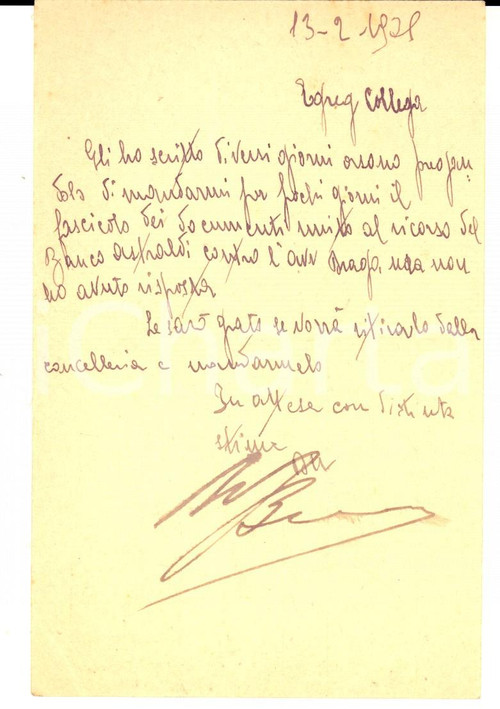 13-2 1925
Egreg Collega
Gli ho scritto diversi giorni orsono pregan=
dolo di mandarmi per pochi giorni il
fascicolo dei documenti unito al ricorso del
Banco Astraldi contro l'avv Braga, ma non
ho avuto risposta
Le sarò grato se vorrà ritirarlo dalla
cancelleria e mandarmelo
In attesa con distinta
stima